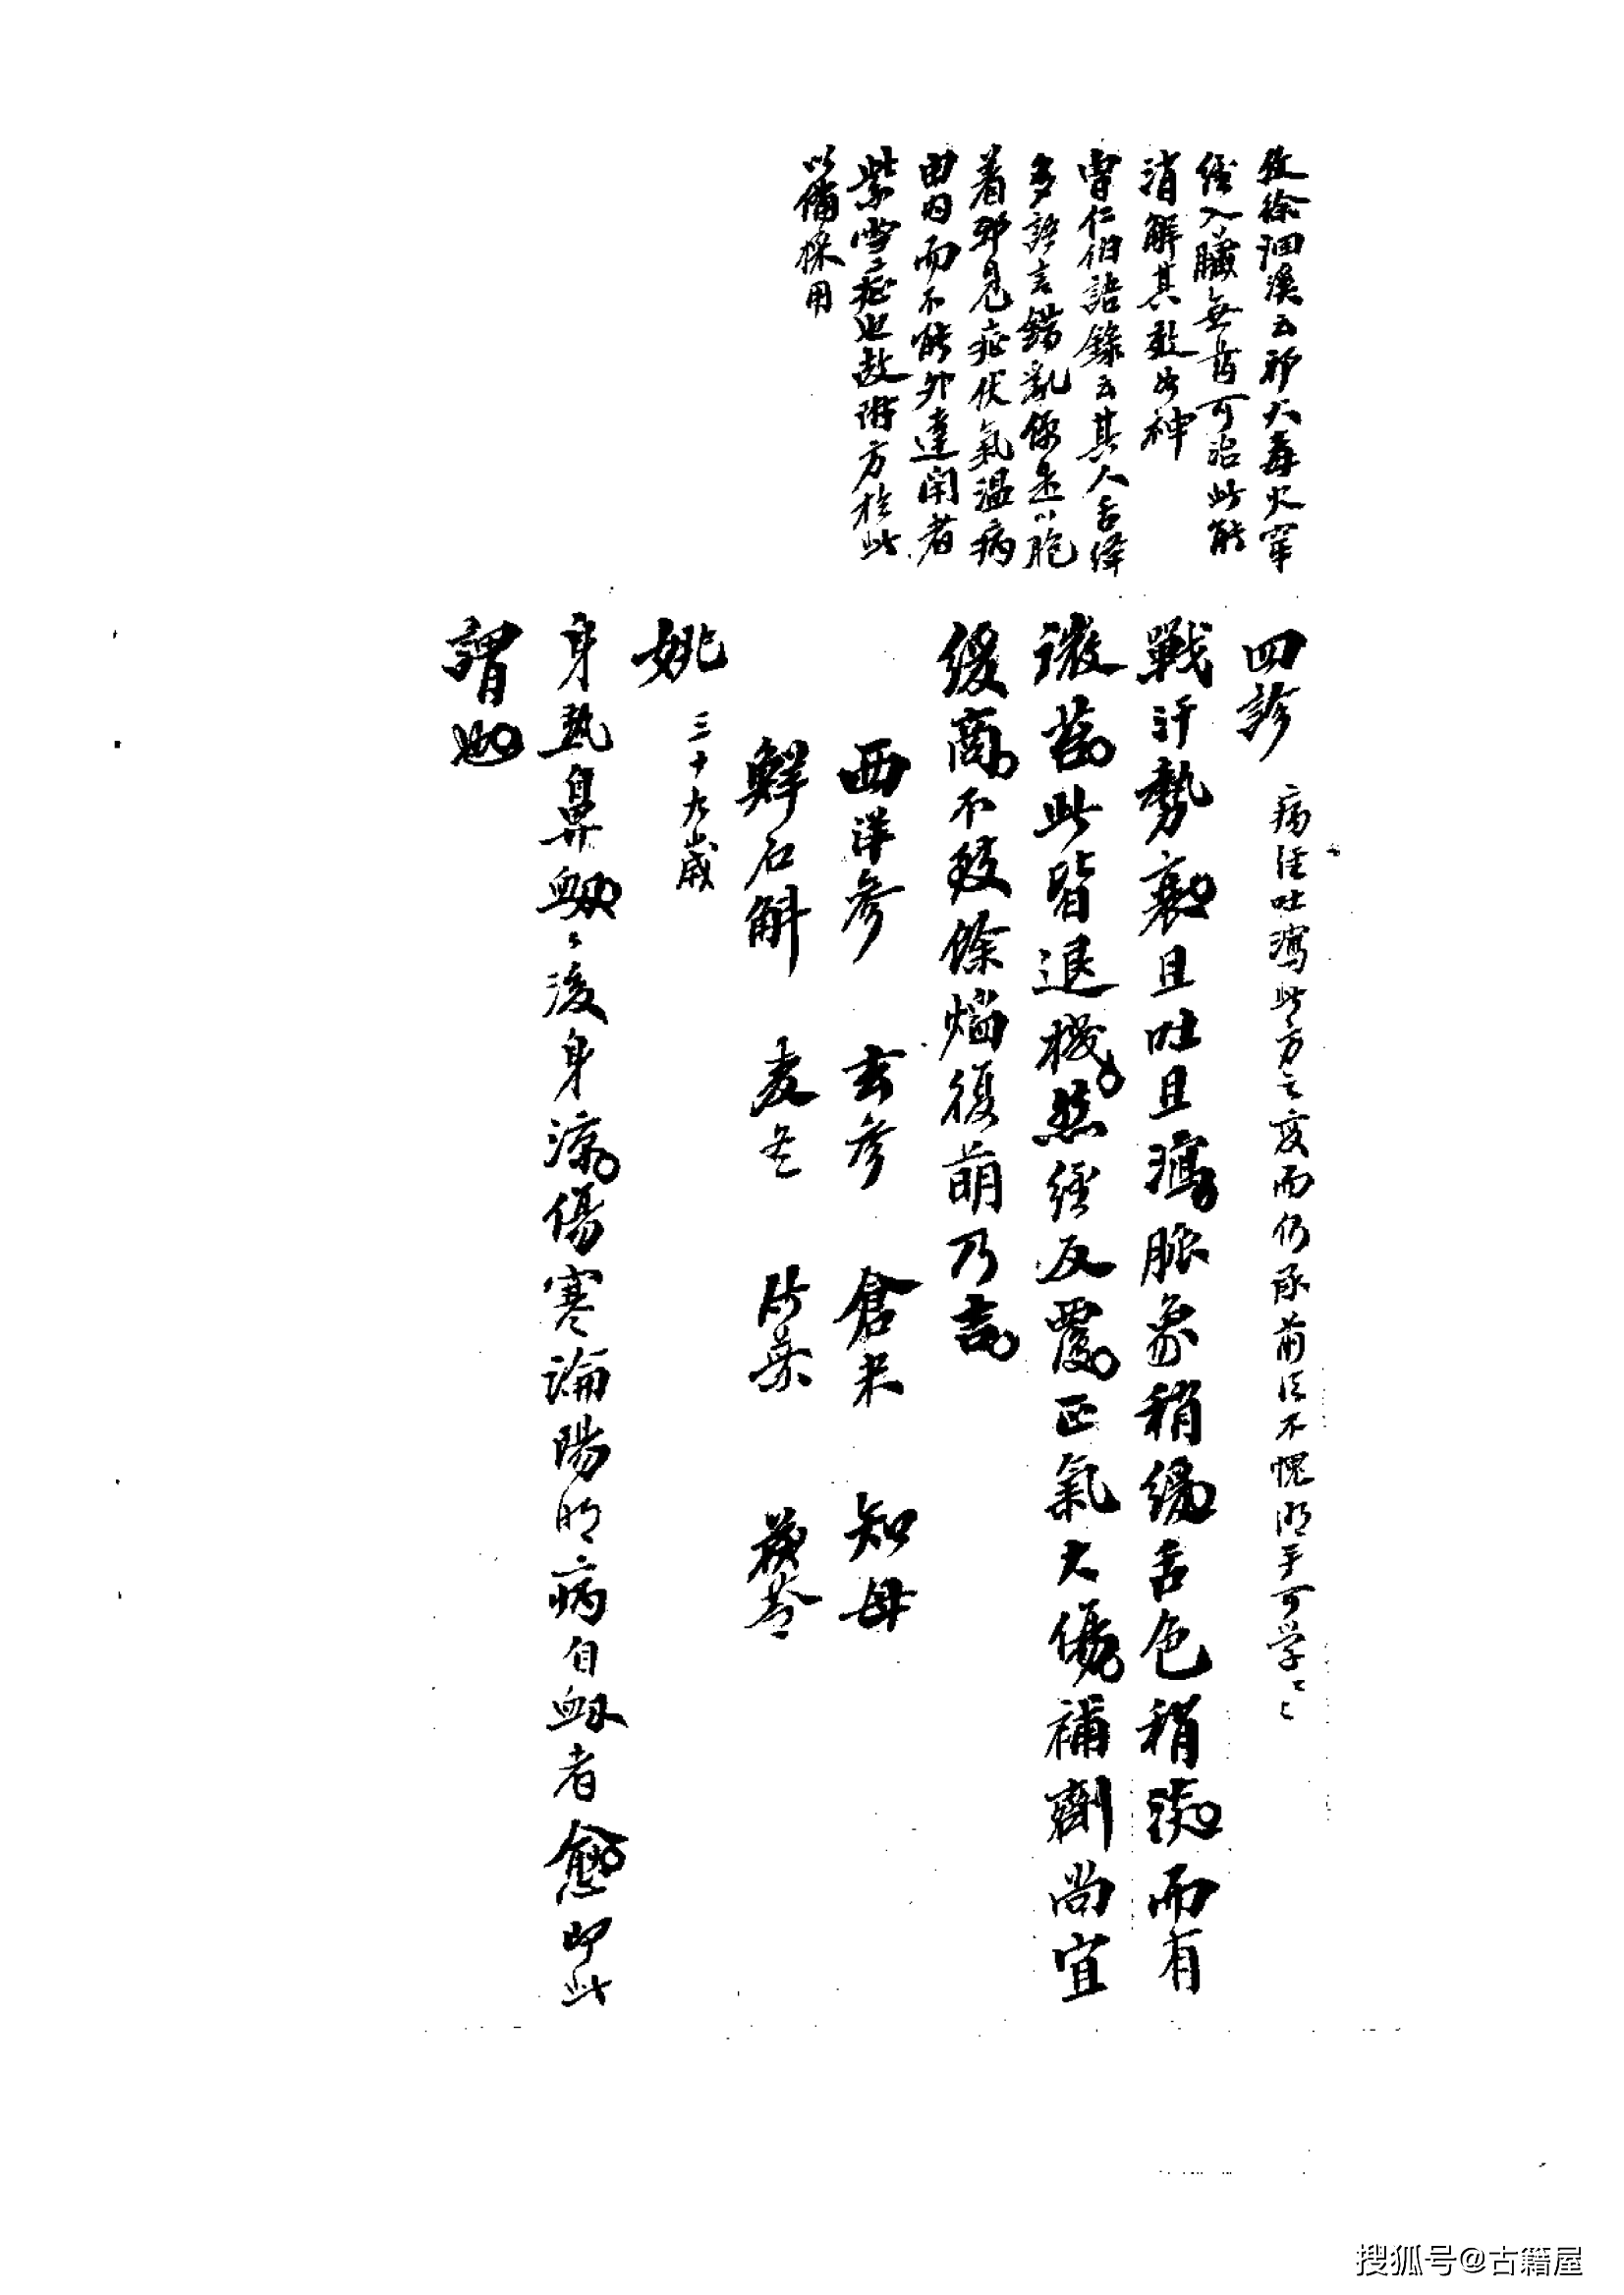 攷徐洄溪云邪火毒火穿
經入臟無葯可治此能
消解其效如神
曹仁伯語錄云其人舌絳
多語言錯亂像是以胞
着邪見症伏氣溫病
由內而不能外達閉者
紫雪症也故附方於此
以備採用
四診 病經吐瀉此方之變而仍承前法不愧老手可学〻〻
戰汗勢衰且吐且瀉脈象稍緩舌色稍淡而有
微苔此皆退機然經反覆正氣大傷補劑尚宜
緩商不致餘焰復萌乃吉
西洋參 玄參 倉米 知母
鮮石斛 麦冬 竹葉 茯苓
姚 三十九歲
身熱鼻衂〻後身涼傷寒論陽明病自衂者愈即此
謂也
搜狐号@古籍屋